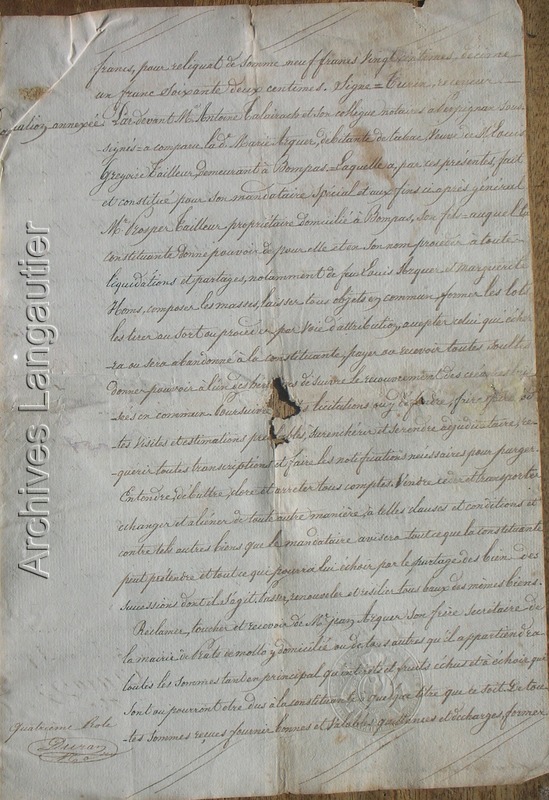 francs, pour reliquat de somme neuf francs vingt centimes, décime
un franc soixante deux centimes. Signé = Turin, receveur
annexée Pardevant Mc Antoine Talairach et son collègue notaires à Perpignan sous-
signés = a comparu la de Marie Arquer, débitante de tabac Veuve de Sr Louis
Grégoire Tailleur, demeurant à Bompas = Laquelle a, par ces présentes, fait
et constitué pour son mandataire spécial et aux fins ci après général
Mr Prosper Tailleur propriétaire domicilié à Bompas, Son fils auquel la
constituante donne pouvoir de pour elle et en son nom procéder à toutes
liquidations et partages, notamment de feu Louis Arquer et marguerite
Homs, composer les masses, laisser tous objets en commun, former les lots
les tirer au Sort ou procéder par voie d'attribution, accepter celui qui écher-
ra ou sera abandonné à la constituante, payer ou recevoir toutes soultes
donner pouvoir à l'un des de suivre le recouvrement des
en commun Poursuivre licitations ou y défendre, faire faire
tes visites et estimations, surenchérir et se rendre adjudicataire, re-
quérir toutes transcriptions et faire les notifications nécessaires pour purger.
Entendre, débattre, clore et arrêter tous comptes. Vendre céder et transporter
échanger et aliéner de toute autre manière, à telles clauses et conditions et
contre tels autres biens que le mandataire avisera tout ce que la constituante
peut prétendre et tout ce qui pourra lui échoir par le partage des biens des
successions dont il s'agit. Passer, renouveler et résilier tous baux des mêmes biens.
Réclamer, toucher et recevoir de Mr Jean Arquer son frère Secrétaire de
la mairie de Prats de mollo y domicilié ou de tous autres qu'il appartiendra
toutes les sommes tant en principal qu'intérêts et fruits échus et à échoir qui
sont ou pourront être dus à la constituante à quelque titre que ce soit. De tou-
tes sommes reçues fournir bonnes et valables quittances et décharges, former
Quatrième Rôle
Duran
Archives Langautier